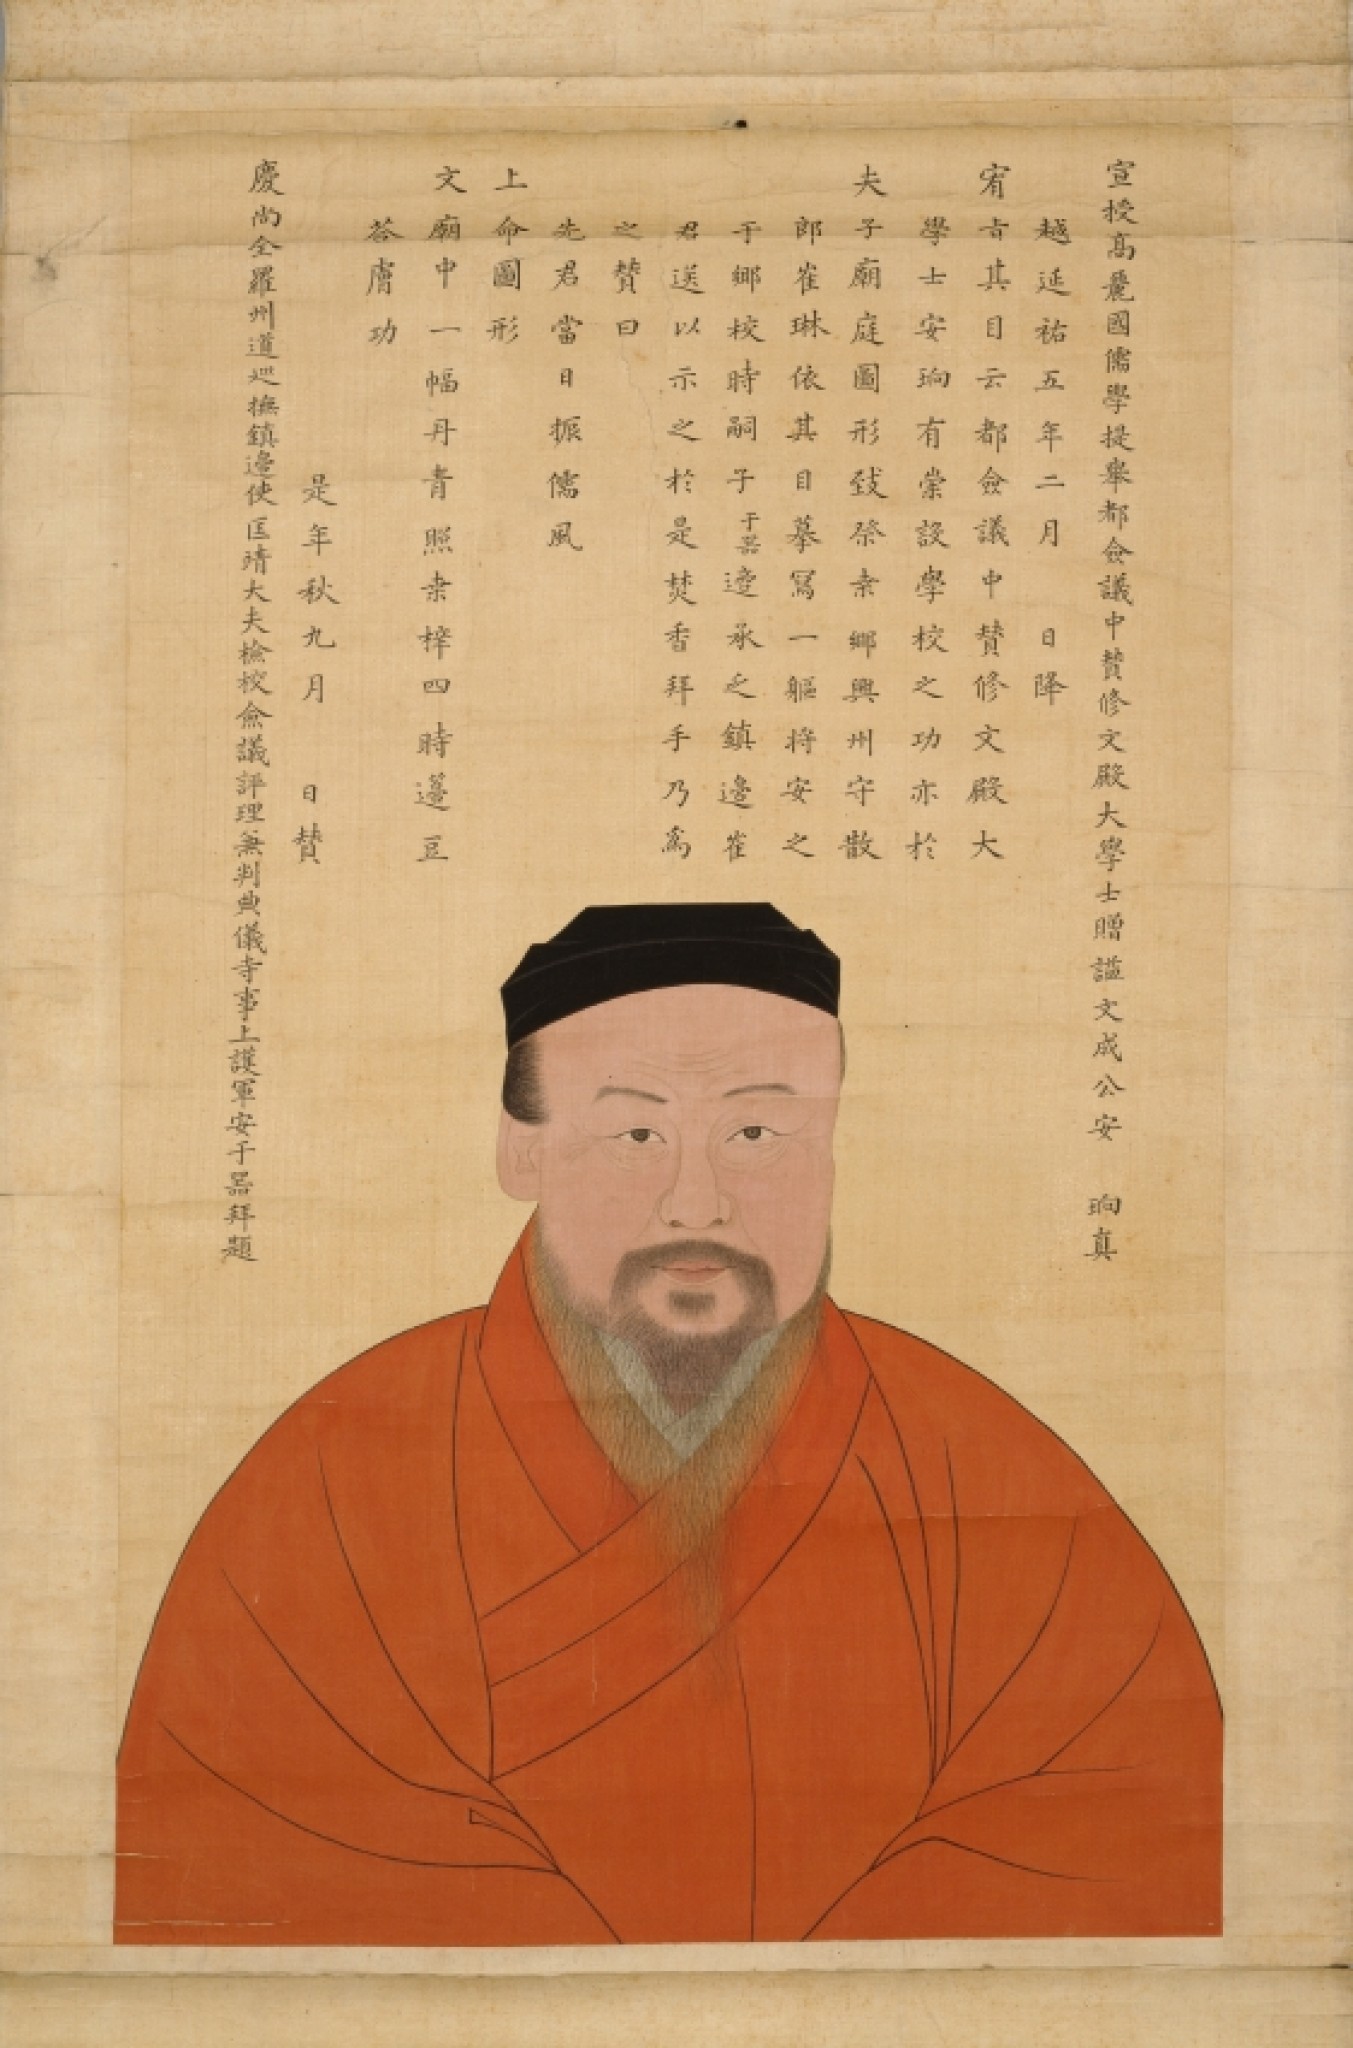 宣授高麗國儒學提舉都僉議中賛修文殿大學士贈謚文成公安 珦真
越延祐五年二月 日降
宥旨其目云都僉議中賛修文殿大
學士安珦有崇設學校之功亦於
夫子廟庭圖形致祭耒鄉興州守散
郎崔琳依其目摹寫一軀将安之
于鄉校時嗣子于器邊承乏鎮邊崔
君送以示之於是焚香拜手乃爲
之賛曰
先君當日振儒風
上命圖形
文廟中一幅丹青照桒梓四時籩豆
答膚功
是年秋九月 日賛
慶尚全羅州道廵撫鎮邊使匡靖大夫檢校僉議評理兼判典儀寺事上護軍安于器拜題